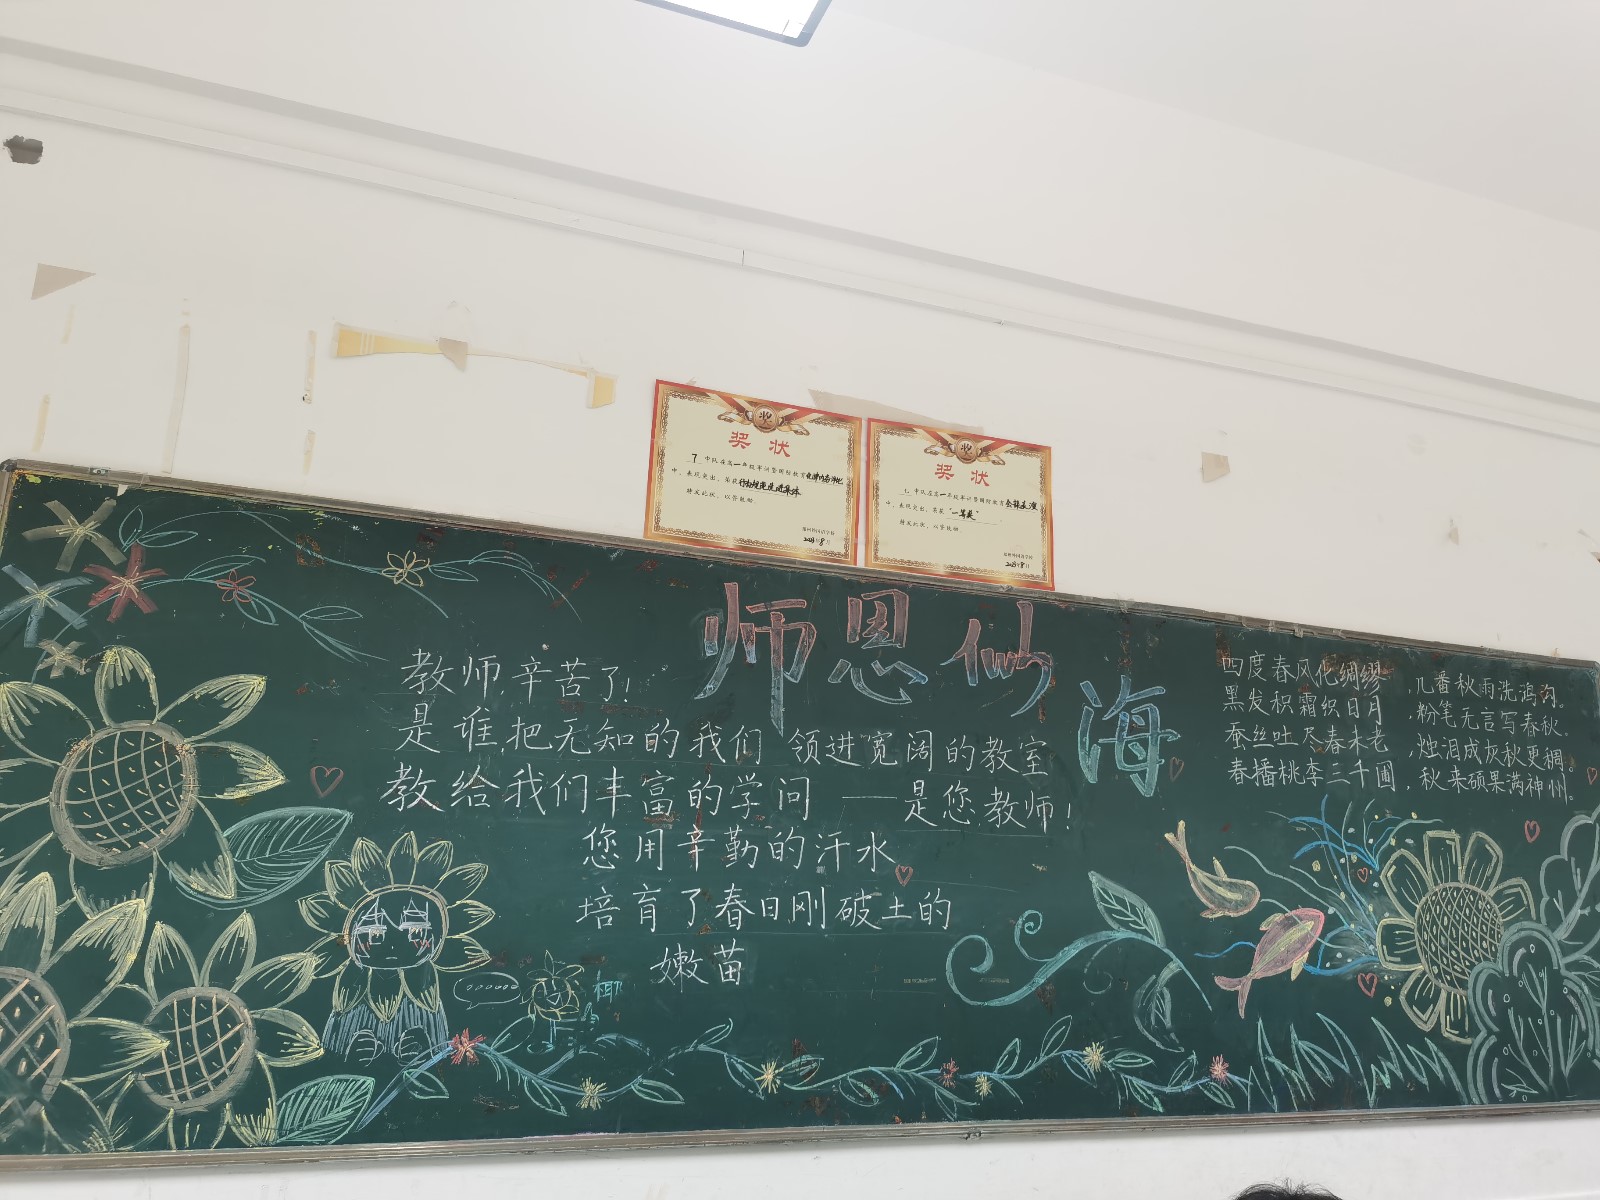 奖状
7 中队在高一年级军训暨国防教育
中，表现突出，荣获行动规范先进集体
特发此状，以资鼓励
郑州外国语学校
2023年8月
奖状
七 中队在高一年级军训暨国防教育会操表演
中，表现突出，荣获“一等奖”
特发此状，以资鼓励
郑州外国语学校
2023年8月
师恩似海
教师,辛苦了!
是谁,把无知的我们 领进宽阔的教室
教给我们丰富的学问 ——是您教师!
您用辛勤的汗水
培育了春日刚破土的
嫩苗
四度春风化绸缪,几番秋雨洗鸿沟。
黑发积霜织日月,粉笔无言写春秋。
蚕丝吐尽春未老,烛泪成灰秋更稠。
春播桃李三千圃,秋来硕果满神州。
……
椰